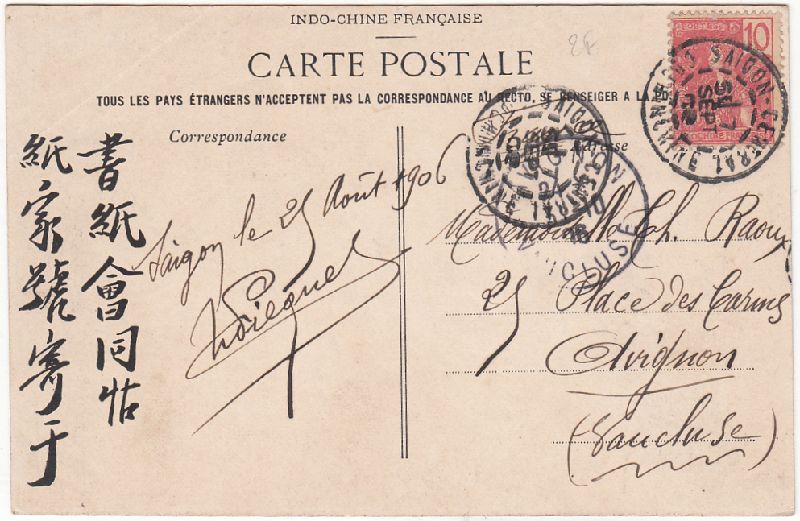 INDO-CHINE FRANÇAISE
CARTE POSTALE
TOUS LES PAYS ÉTRANGERS N'ACCEPTENT PAS LA CORRESPONDANCE AU RECTO, SE RENSEIGER A LA PO
Correspondance
Adresse
2F
10
SAIGON-CENTRAL
SEPT
SAIGON-CENTRAL
VAUCLUSE
書紙會同怙
紙家號寄于
Saigon le 25 Août 1906
Mademoiselle Th. Raoux
25 Place des Carmes
Avignon
(Vaucluse)